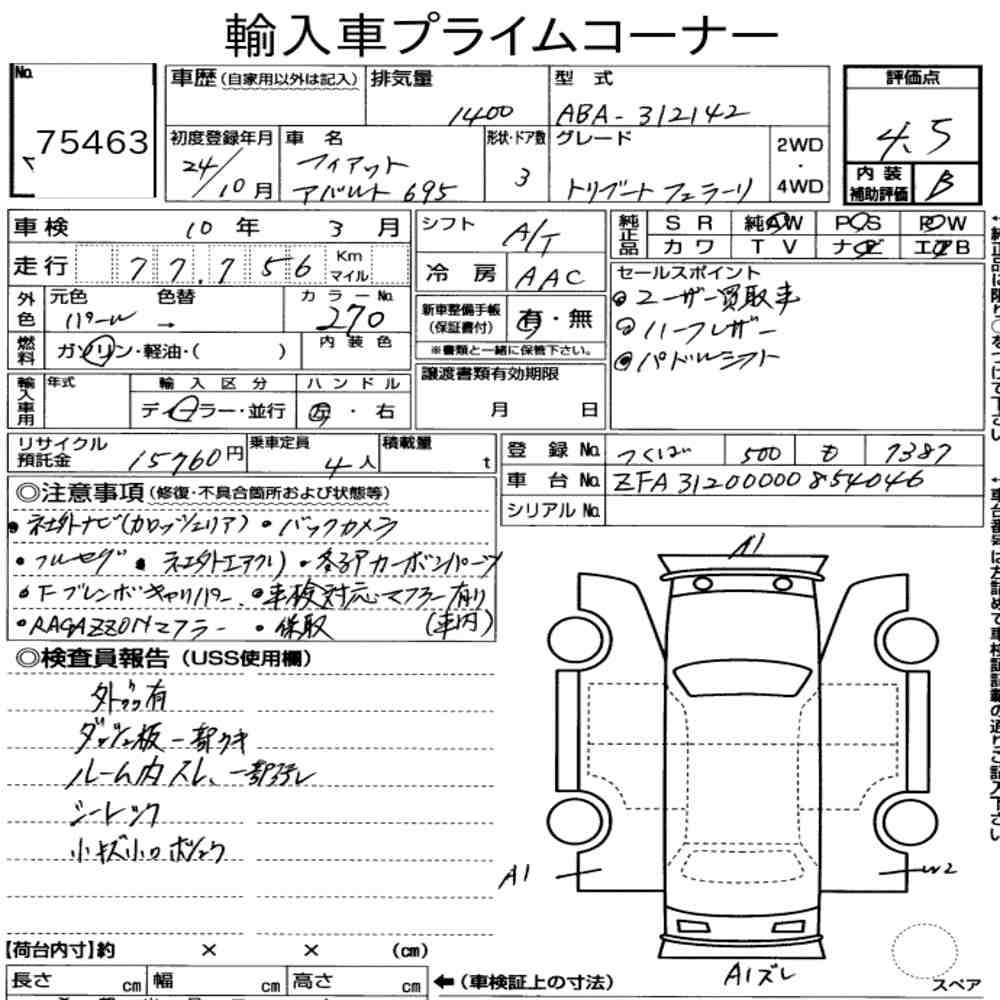 輸入車プライムコーナー
No.
75463
車歴(自家用以外は記入)
排気量
1400
型式
ABA-312142
評価点
4.5
初度登録年月
24/10月
車名
フィアット
アバルト 695
形状・ドア数
3
グレード
トリブート フェラーリ
2WD
・
4WD
内装
補助評価
B
車検 10年 3月
シフト
A/T
純正品
SR 純AW PS PW
カワ TV ナビ エアB
走行 77,756 Km
マイル
冷房 AAC
セールスポイント
●ユーザー買取車
●ハーフレザー
●パドルシフト
外色
元色 色替 カラーNo.
パール → 270
新車整備手帳
(保証書付)
有・無
※書類と一緒に保管下さい。
燃料
ガソリン・軽油・( )
内装色
譲渡書類有効期限
月 日
輸入車用
年式
輸入区分
ハンドル
ディーラー・並行
左・右
リサイクル
預託金
15760円
乗車定員
4人
積載量
t
登録No. つくば 500 も 7387
車台No. ZFA31200000854046
シリアルNo.
◎注意事項(修復・不具合箇所および状態等)
●社外ナビ(カロッツェリア) ・バックカメラ
・フルセグ ●社外エアクリ ・各部カーボンパーツ
●F ブレンボキャリパー ●車検対応マフラー有り
・RAGAZZONマフラー ・保取 (車内)
◎検査員報告(USS使用欄)
外ブツ有
ダッシュ板一部ウキ
ルーム内スレ、一部汚レ
小キズ小凹ボシュウ
A1
A1
W2
A1ズレ
スペア
【荷台内寸】約 × × (cm)
長さ cm 幅 cm 高さ cm
←(車検証上の寸法)